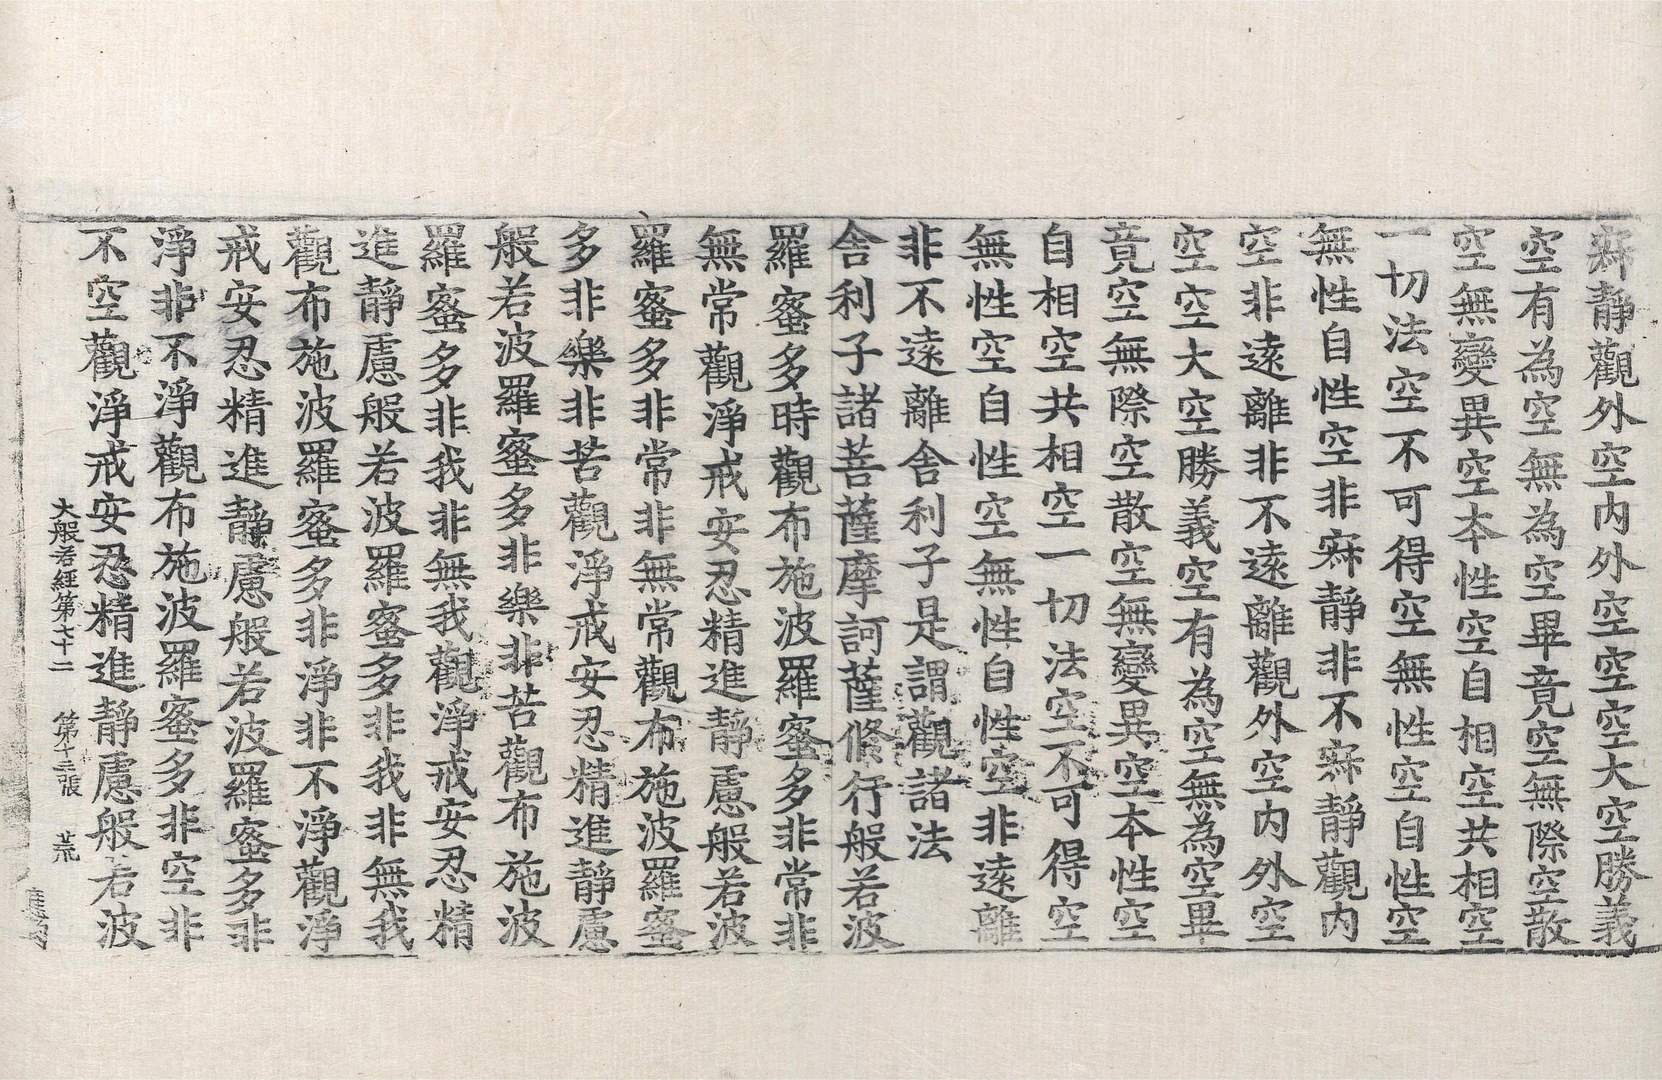 寂靜觀外空内外空空空大空勝義
空有為空無為空畢竟空無際空散
空無變異空本性空自相空共相空
一切法空不可得空無性空自性空
無性自性空非寂靜非不寂靜觀内
空非遠離非不遠離觀外空内外空
空空大空勝義空有為空無為空畢
竟空無際空散空無變異空本性空
自相空共相空一切法空不可得空
無性空自性空無性自性空非遠離
非不遠離舍利子是謂觀諸法
舍利子諸菩薩摩訶薩修行般若波
羅蜜多時觀布施波羅蜜多非常非
無常觀淨戒安忍精進靜慮般若波
羅蜜多非常非無常觀布施波羅蜜
多非樂非苦觀淨戒安忍精進靜慮
般若波羅蜜多非樂非苦觀布施波
羅蜜多非我非無我觀淨戒安忍精
進靜慮般若波羅蜜多非我非無我
觀布施波羅蜜多非淨非不淨觀淨
戒安忍精進靜慮般若波羅蜜多非
淨非不淨觀布施波羅蜜多非空非
不空觀淨戒安忍精進靜慮般若波
大般若經第七十二 第十三張 荒